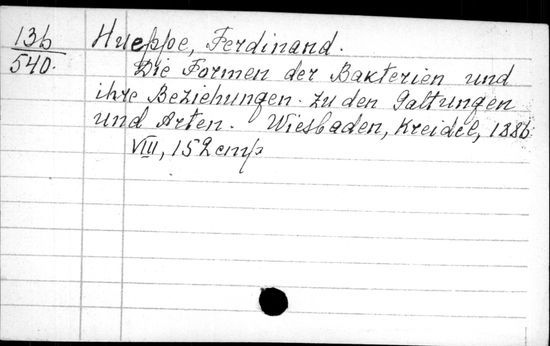 13b
540.
Hueppe, Ferdinand.
Die Formen der Bakterien und
ihre Beziehungen zu den Gattungen
und Arten. Wiesbaden, Kreidel, 1886
VIII, 152 cmp